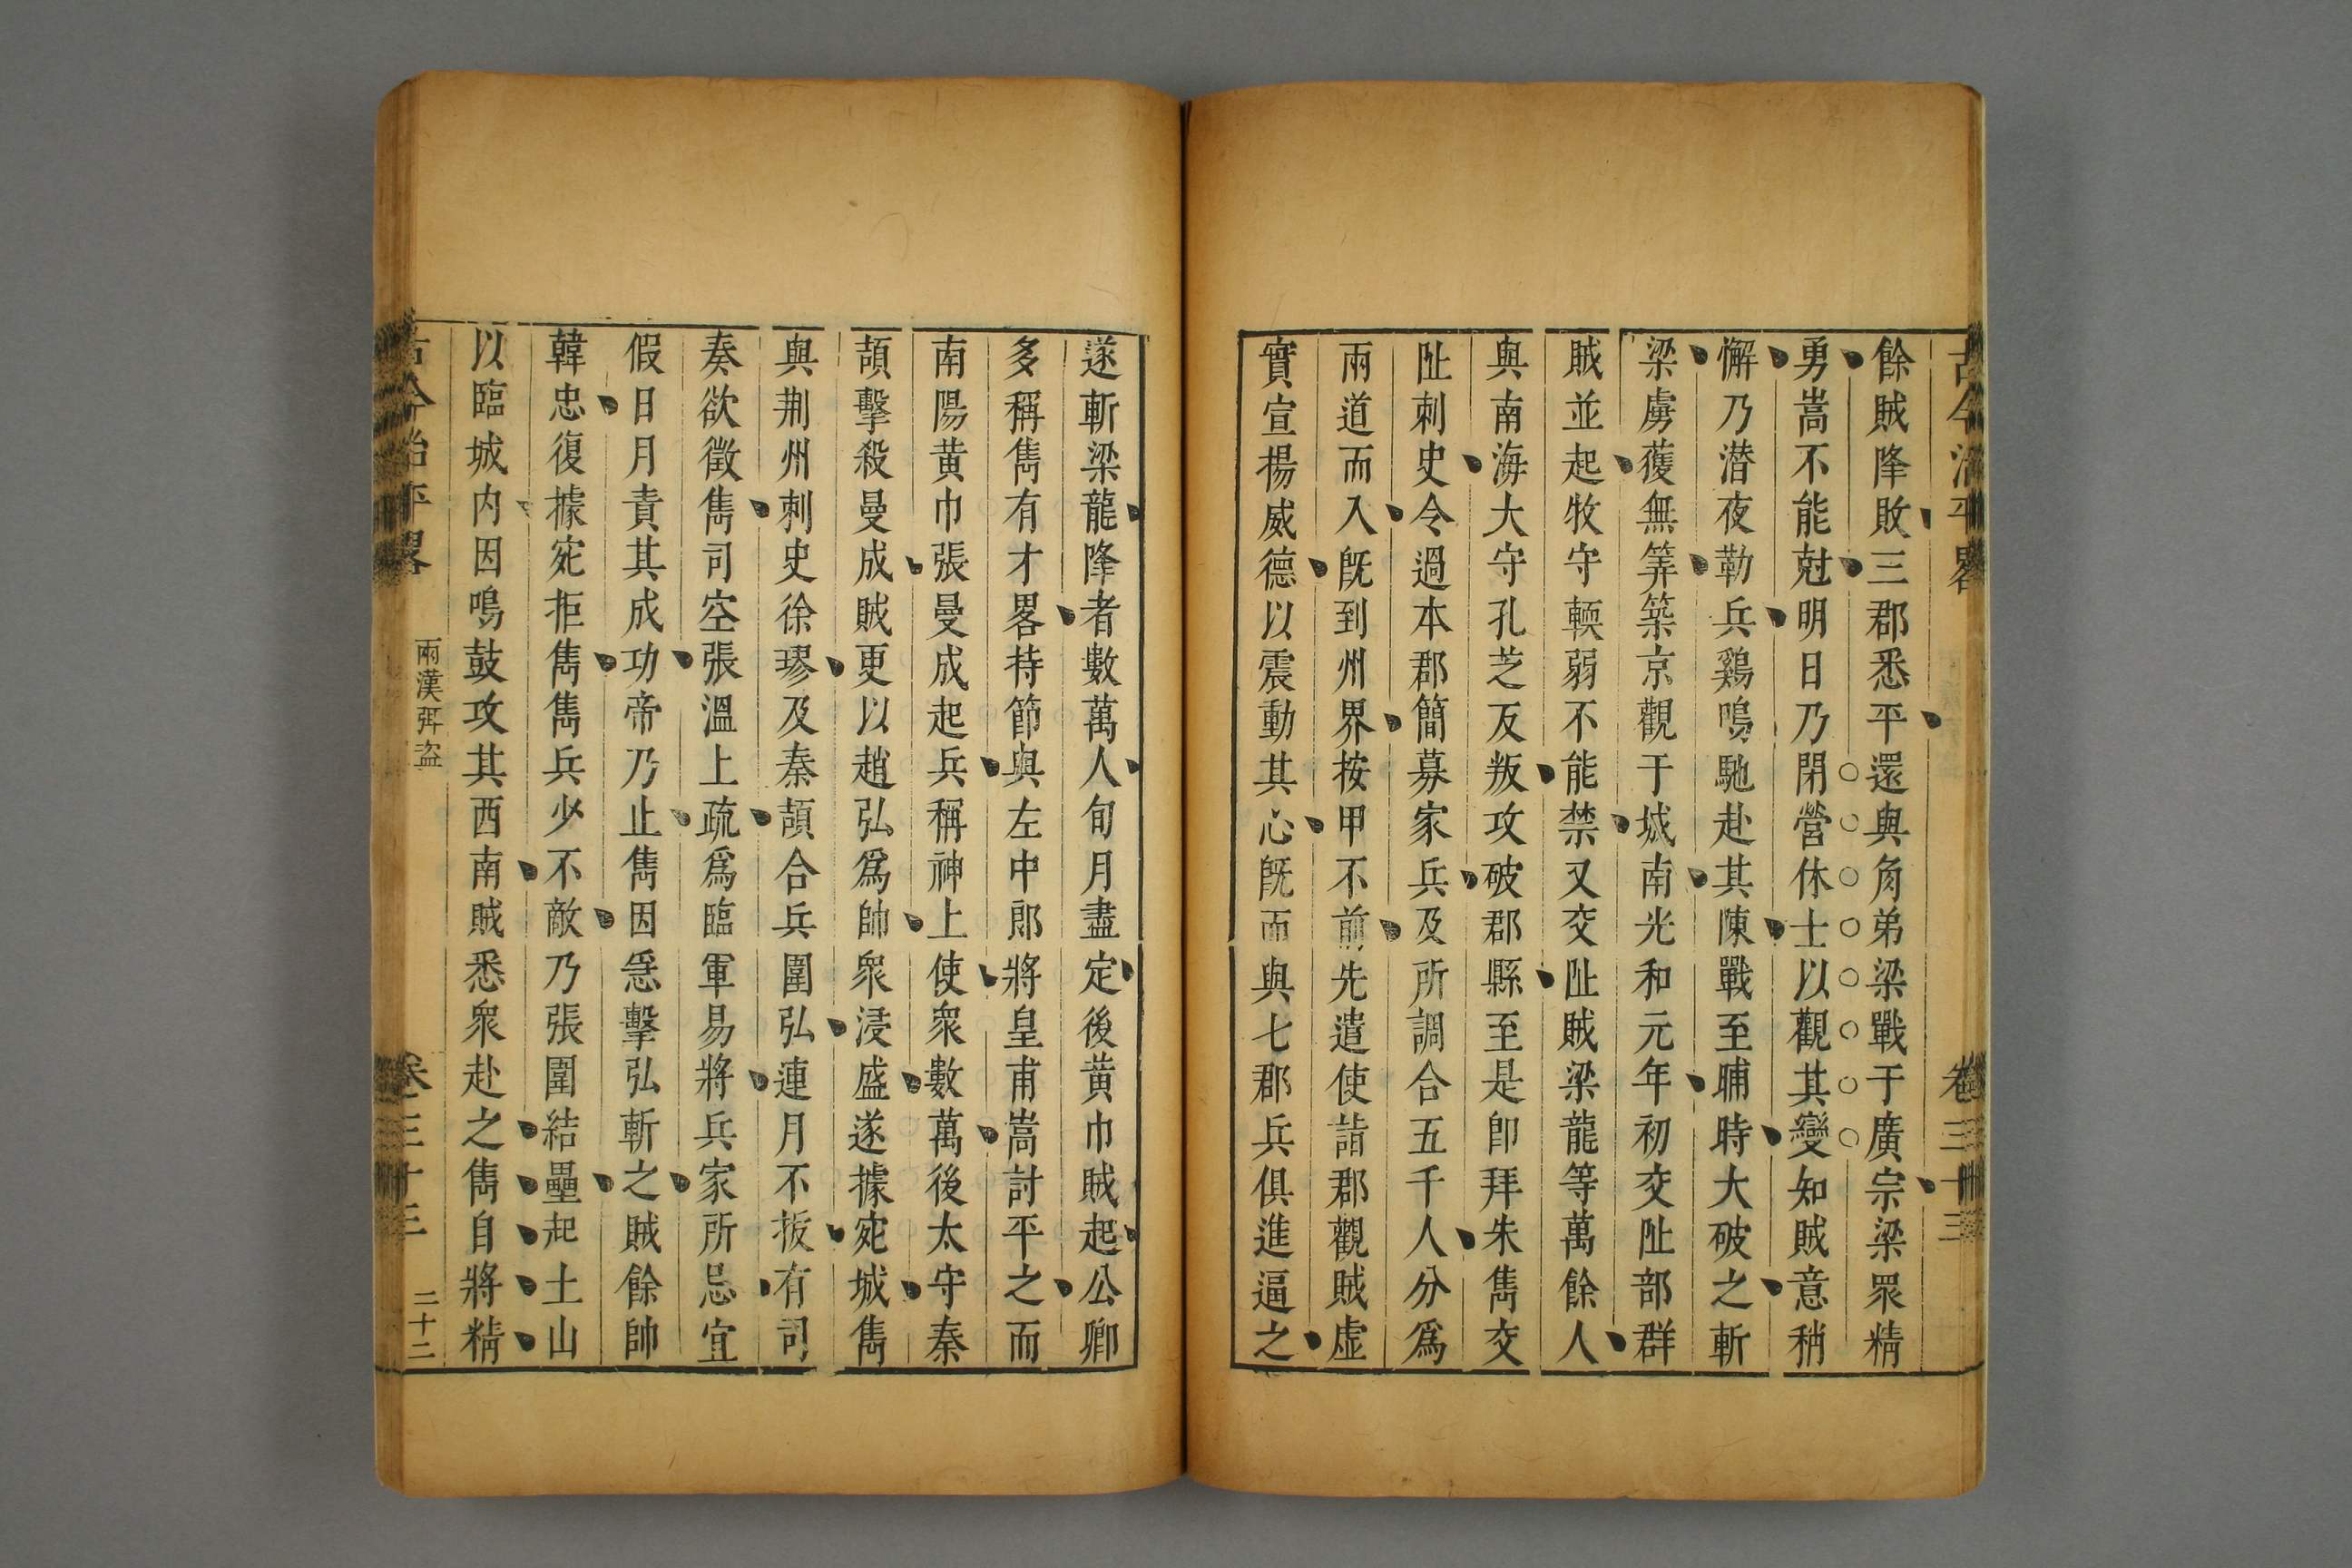 古今治平畧 卷三十三
餘賊降敗三郡悉平還與角弟梁戰于廣宗梁眾精
勇嵩不能尅明日乃閉營休士以觀其變知賊意稍
懈乃潜夜勒兵鷄鳴馳赴其陳戰至晡時大破之斬
梁虜獲無筭築京觀于城南光和元年初交阯部群
賊並起牧守輭弱不能禁又交阯賊梁龍等萬餘人
與南海大守孔芝反叛攻破郡縣至是卽拜朱雋交
阯刺史令過本郡簡募家兵及所調合五千人分爲
兩道而入旣到州界按甲不前先遣使詣郡觀賊虛
實宣揚威德以震動其心旣而與七郡兵俱進逼之
遂斬梁龍降者數萬人旬月盡定後黄巾賊起公卿
多稱雋有才畧持節與左中郎將皇甫嵩討平之而
南陽黄巾張曼成起兵稱神上使衆數萬後太守秦
頡擊殺曼成賊更以趙弘爲帥衆浸盛遂據宛城雋
與荆州刺史徐璆及秦頡合兵圍弘連月不拔有司
奏欲徵雋司空張溫上疏爲臨軍易將兵家所忌宜
假日月責其成功帝乃止雋因急擊弘斬之賊餘帥
韓忠復據宛拒雋雋兵少不敵乃張圍結壘起土山
以臨城内因鳴鼓攻其西南賊悉衆赴之雋自將精
古今治平畧 兩漢弭盗 卷三十三 二十二